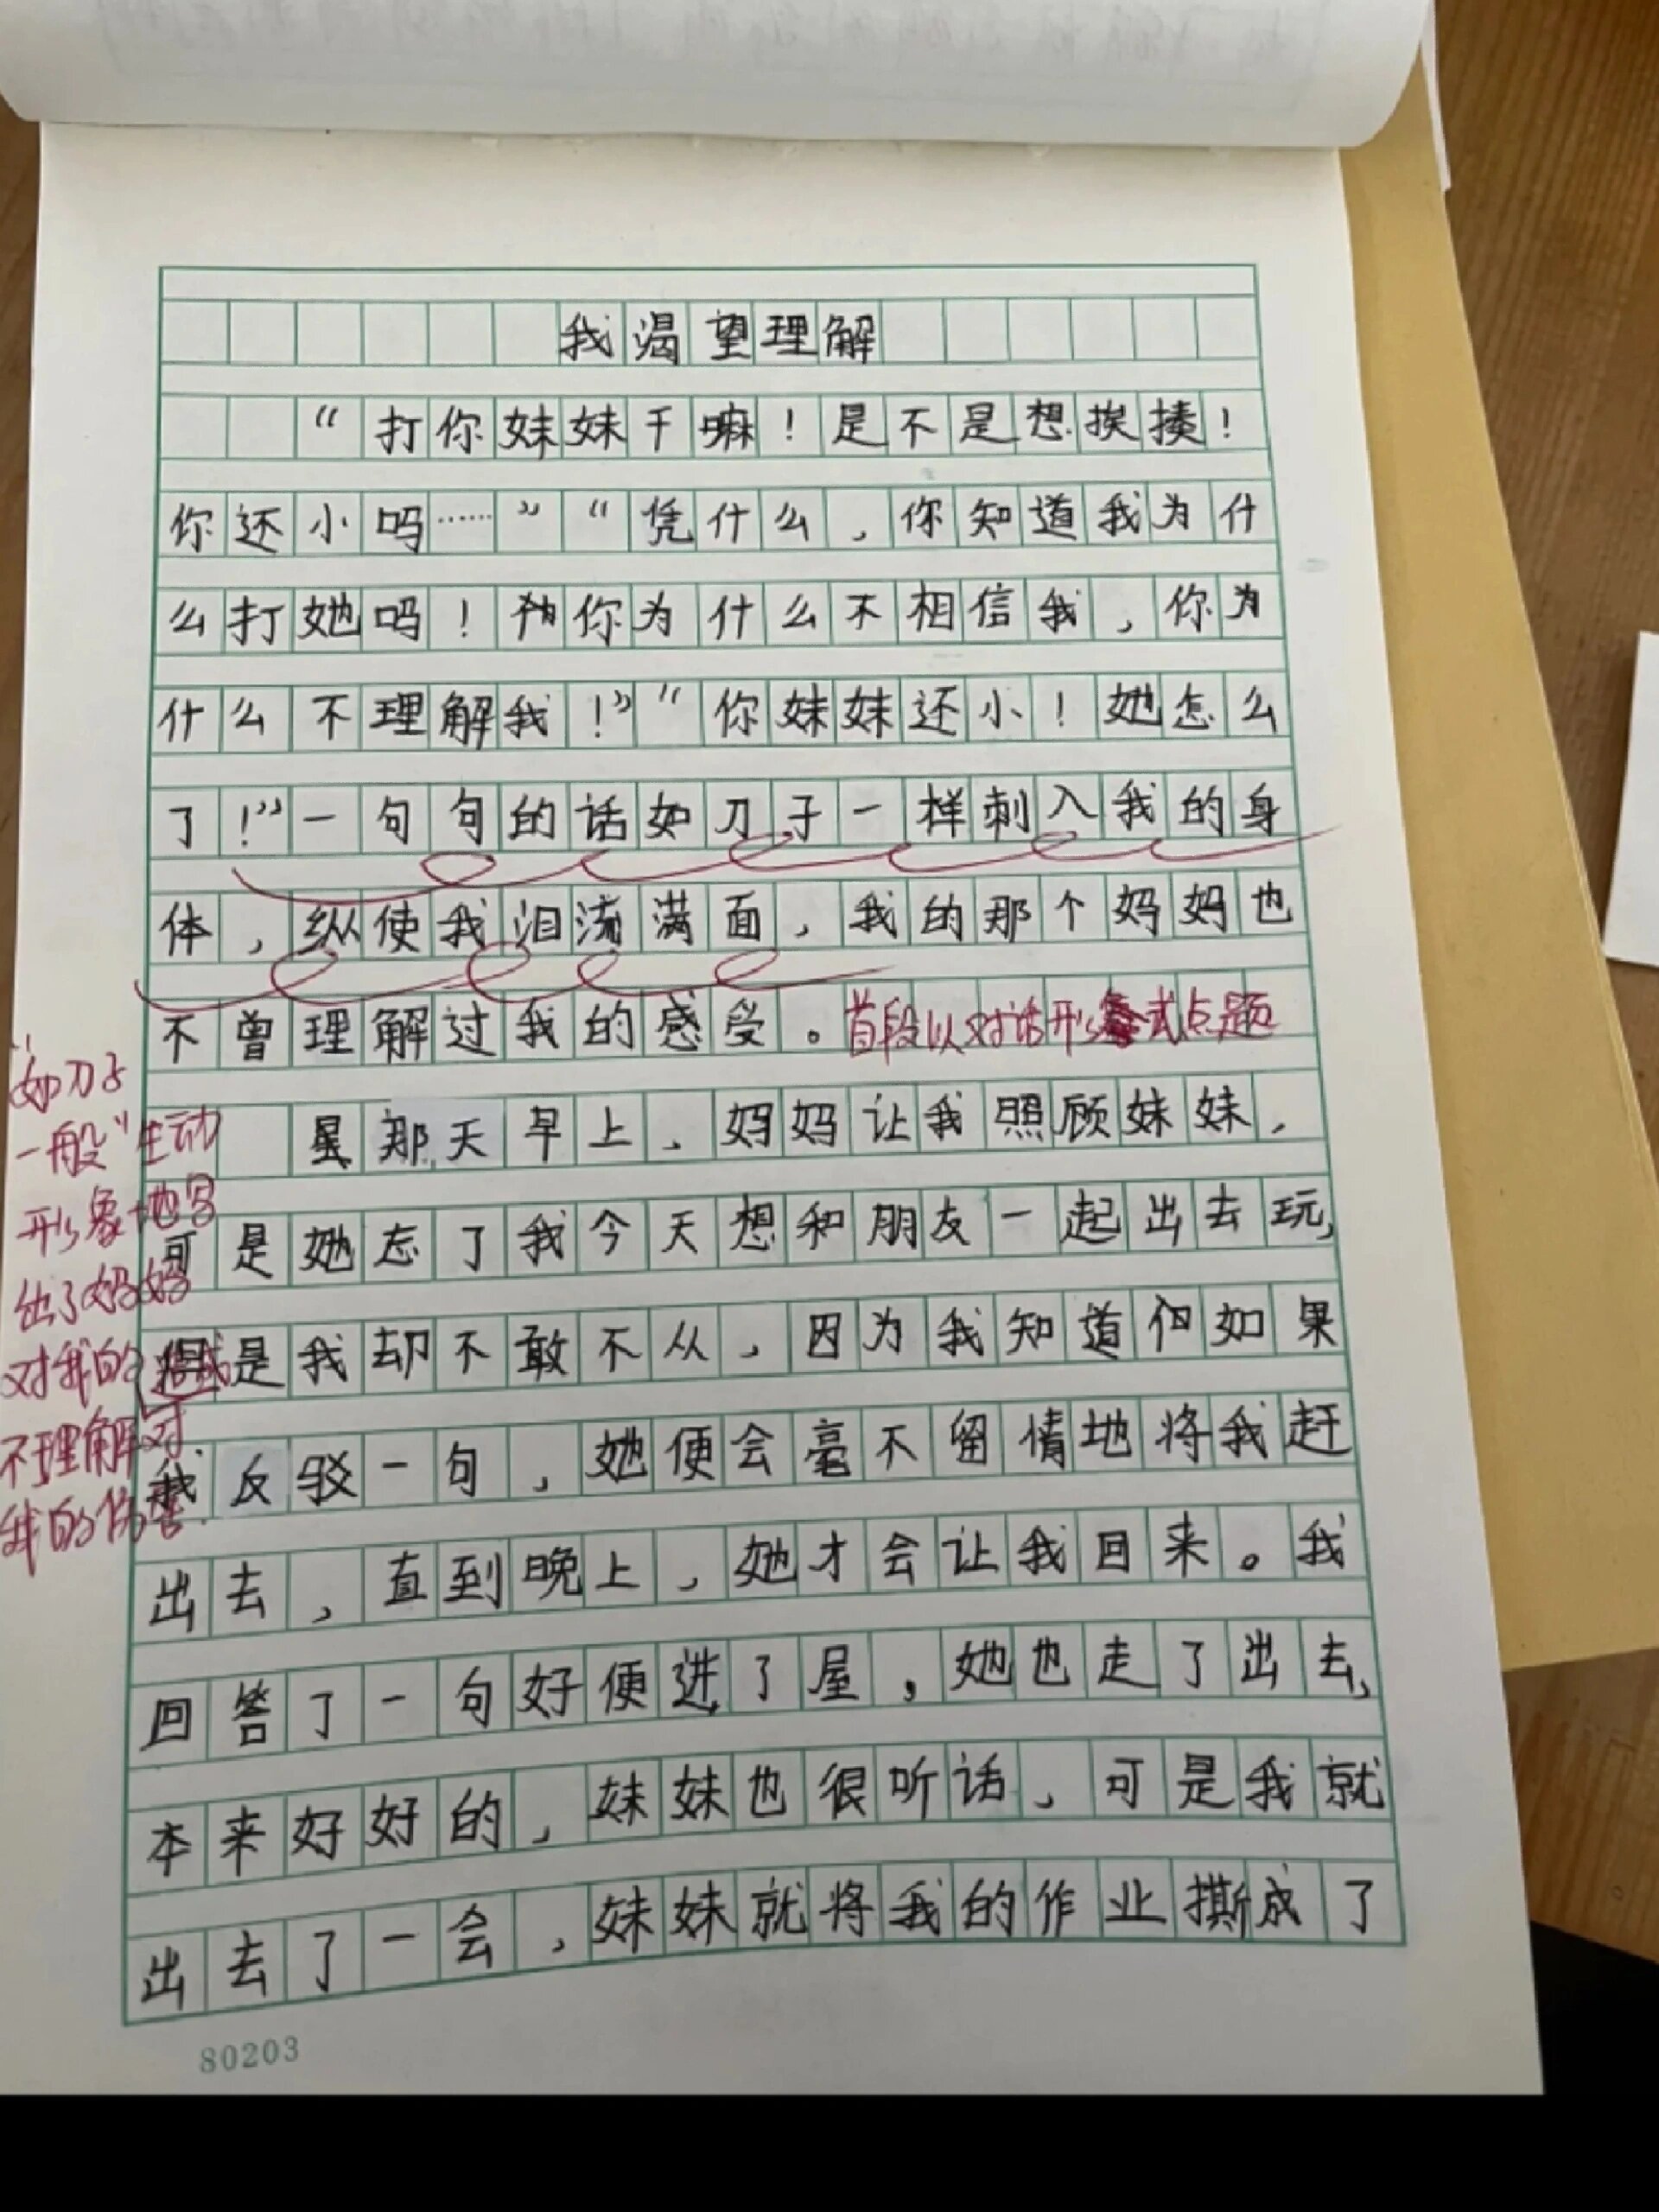 我渴望理解
“打你妹妹干嘛！是不是想挨揍！
你还小吗……”“凭什么，你知道我为什
么打她吗！你为什么不相信我，你为
什么不理解我！”“你妹妹还小！她怎么
了！”一句句的话如刀子一样刺入我的身
体，纵使我泪流满面，我的那个妈妈也
不曾理解过我的感受。首段以对话形式点题
那天早上，妈妈让我照顾妹妹，
可是她忘了我今天想和朋友一起出去玩，
是我却不敢不从，因为我知道如果
我反驳一句，她便会毫不留情地将我赶
出去，直到晚上，她才会让我回来。我
回答了一句好便进了屋，她也走了出去，
本来好好的，妹妹也很听话，可是我就
出去了一会，妹妹就将我的作业撕成了
“如刀子
一般”生动
形象地写
出了妈妈
对我的
不理解对
我的伤害.
80203